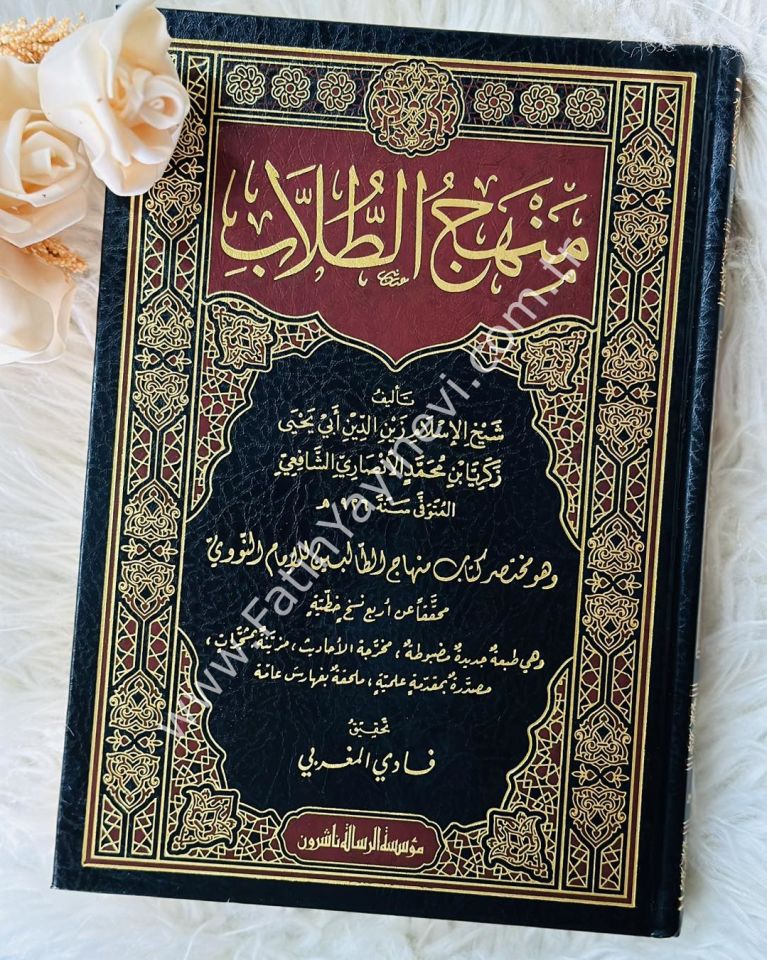 مَنْهَجُ الطُّلَّابِ
تأليف
شَيْخِ الإِسْلَامِ زَيْنِ الدِّينِ أَبِي يَحْيَى
زَكَرِيَّا بْنِ مُحَمَّدٍ الأَنْصَارِيِّ الشَّافِعِيِّ
المُتَوَفَّى سَنَةَ هـ
وهو مختصر كتاب منهاج الطالبين للإمام النووي
محقَّقاً عن أربع نسخٍ خطّيّةٍ
وهي طبعةٌ جديدةٌ مضبوطةٌ، مخرَّجة الأحاديث، مزيّنةٌ بمشجّرات،
مصدّرةٌ بمقدّمةٍ علميّةٍ، ملحقةٌ بفهارس عامّة
تحقيق
فادي المغربي
مؤسسة الرسالة ناشرون
www.FatihYayinevi.com.tr